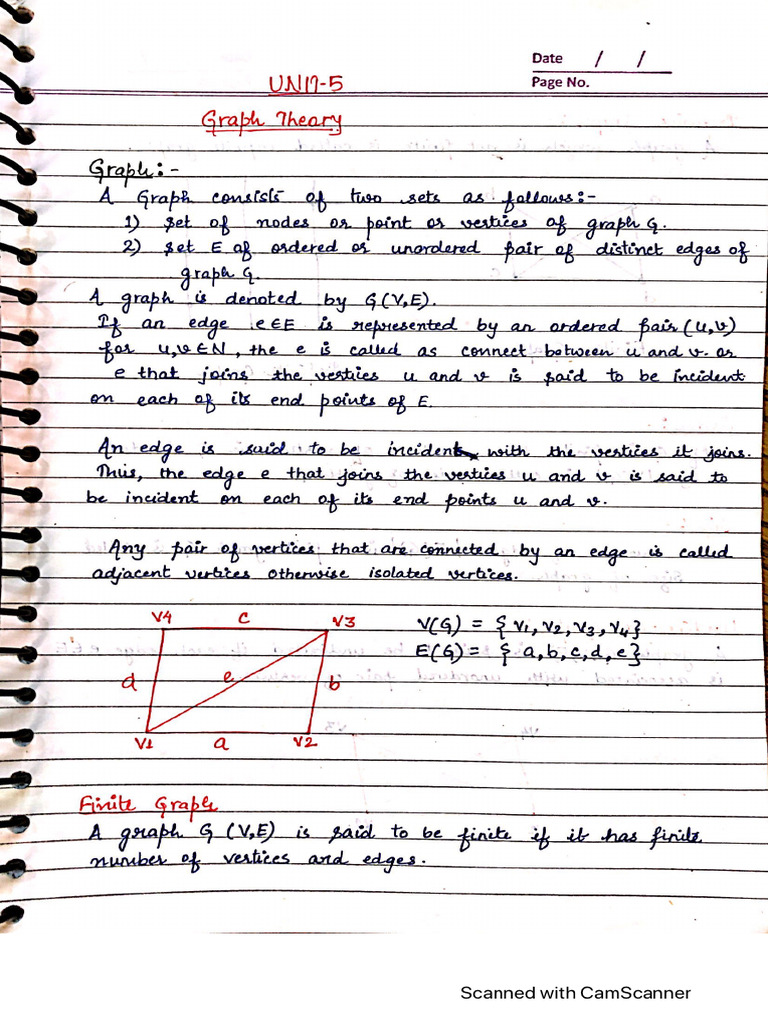 Date / /
Page No.
UNIT-5
Graph Theory
Graph:-
A Graph consists of two sets as follows:-
1) Set of nodes or point or vertices of graph G.
2) Set E of ordered or unordered pair of distinct edges of
graph G.
A graph is denoted by G(V,E).
If an edge e∈E is represented by an ordered pair (u,v)
for u,v∈N, the e is called as connect between u and v. or
e that joins the vertiies u and v is said to be incident
on each of its end points of E.
An edge is said to be incident with the vertices it joins.
Thus, the edge e that joins the vertices u and v is said to
be incident on each of its end points u and v.
Any pair of vertices that are connected by an edge is called
adjacent vertices otherwise isolated vertices.
V4 c V3
V(G) = { V1, V2, V3, V4}
E(G) = { a, b, c, d, e}
d e b
V1 a V2
Finite Graph
A graph G (V,E) is said to be finite if it has finite
number of vertices and edges.
Scanned with CamScanner